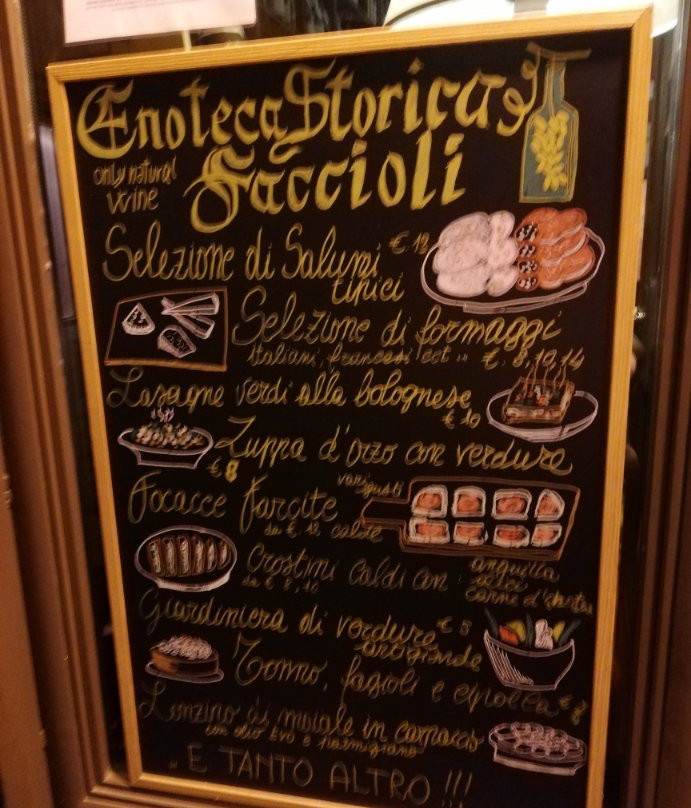 Enoteca Storica
Faccioli
only natural
wine
Selezione di Salumi € 12
tipici
Selezione di formaggi
italiani, francesi ect .. €. 8, 10, 14
Lasagne verdi alla bolognese
€ 10
Zuppa d'orzo con verdure
€ 8
Focacce farcite vari gusti
da €. 12 calde
Crostini Caldi con anguilla
da € 8, 10
carne d'
Giardiniera di verdure € 5
artigianale
Tonno, fagioli e cipolla € 8
Lonzino di maiale in carpaccio
con olio EVO e parmigiano
.. E TANTO ALTRO !!!